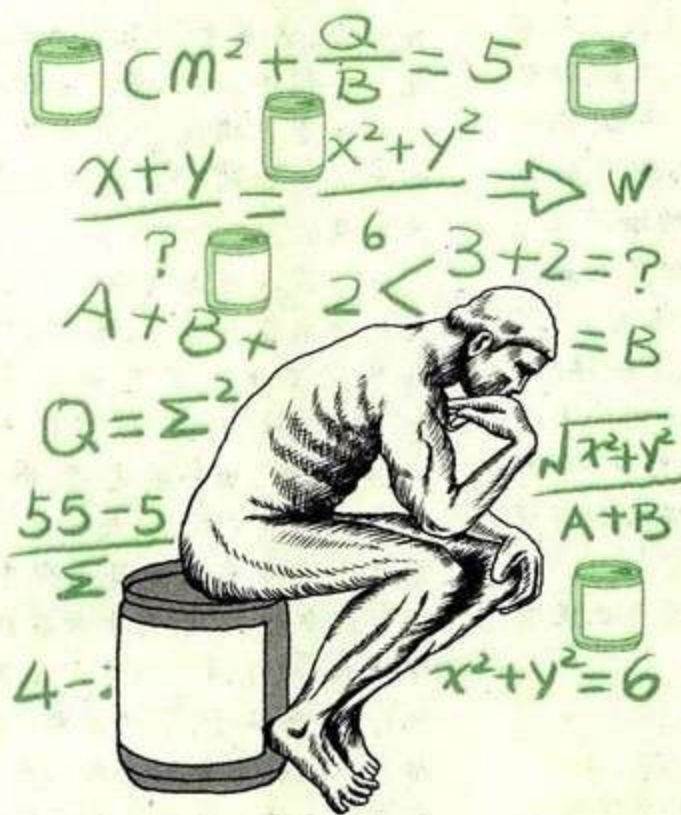 cm² + Q/B = 5
x+y/? = x²+y²/6 ⇒ W
2 < 3+2=?
A+B+ = B
Q=Σ²
√x²+y²/A+B
55-5/Σ
4-
x²+y²=6